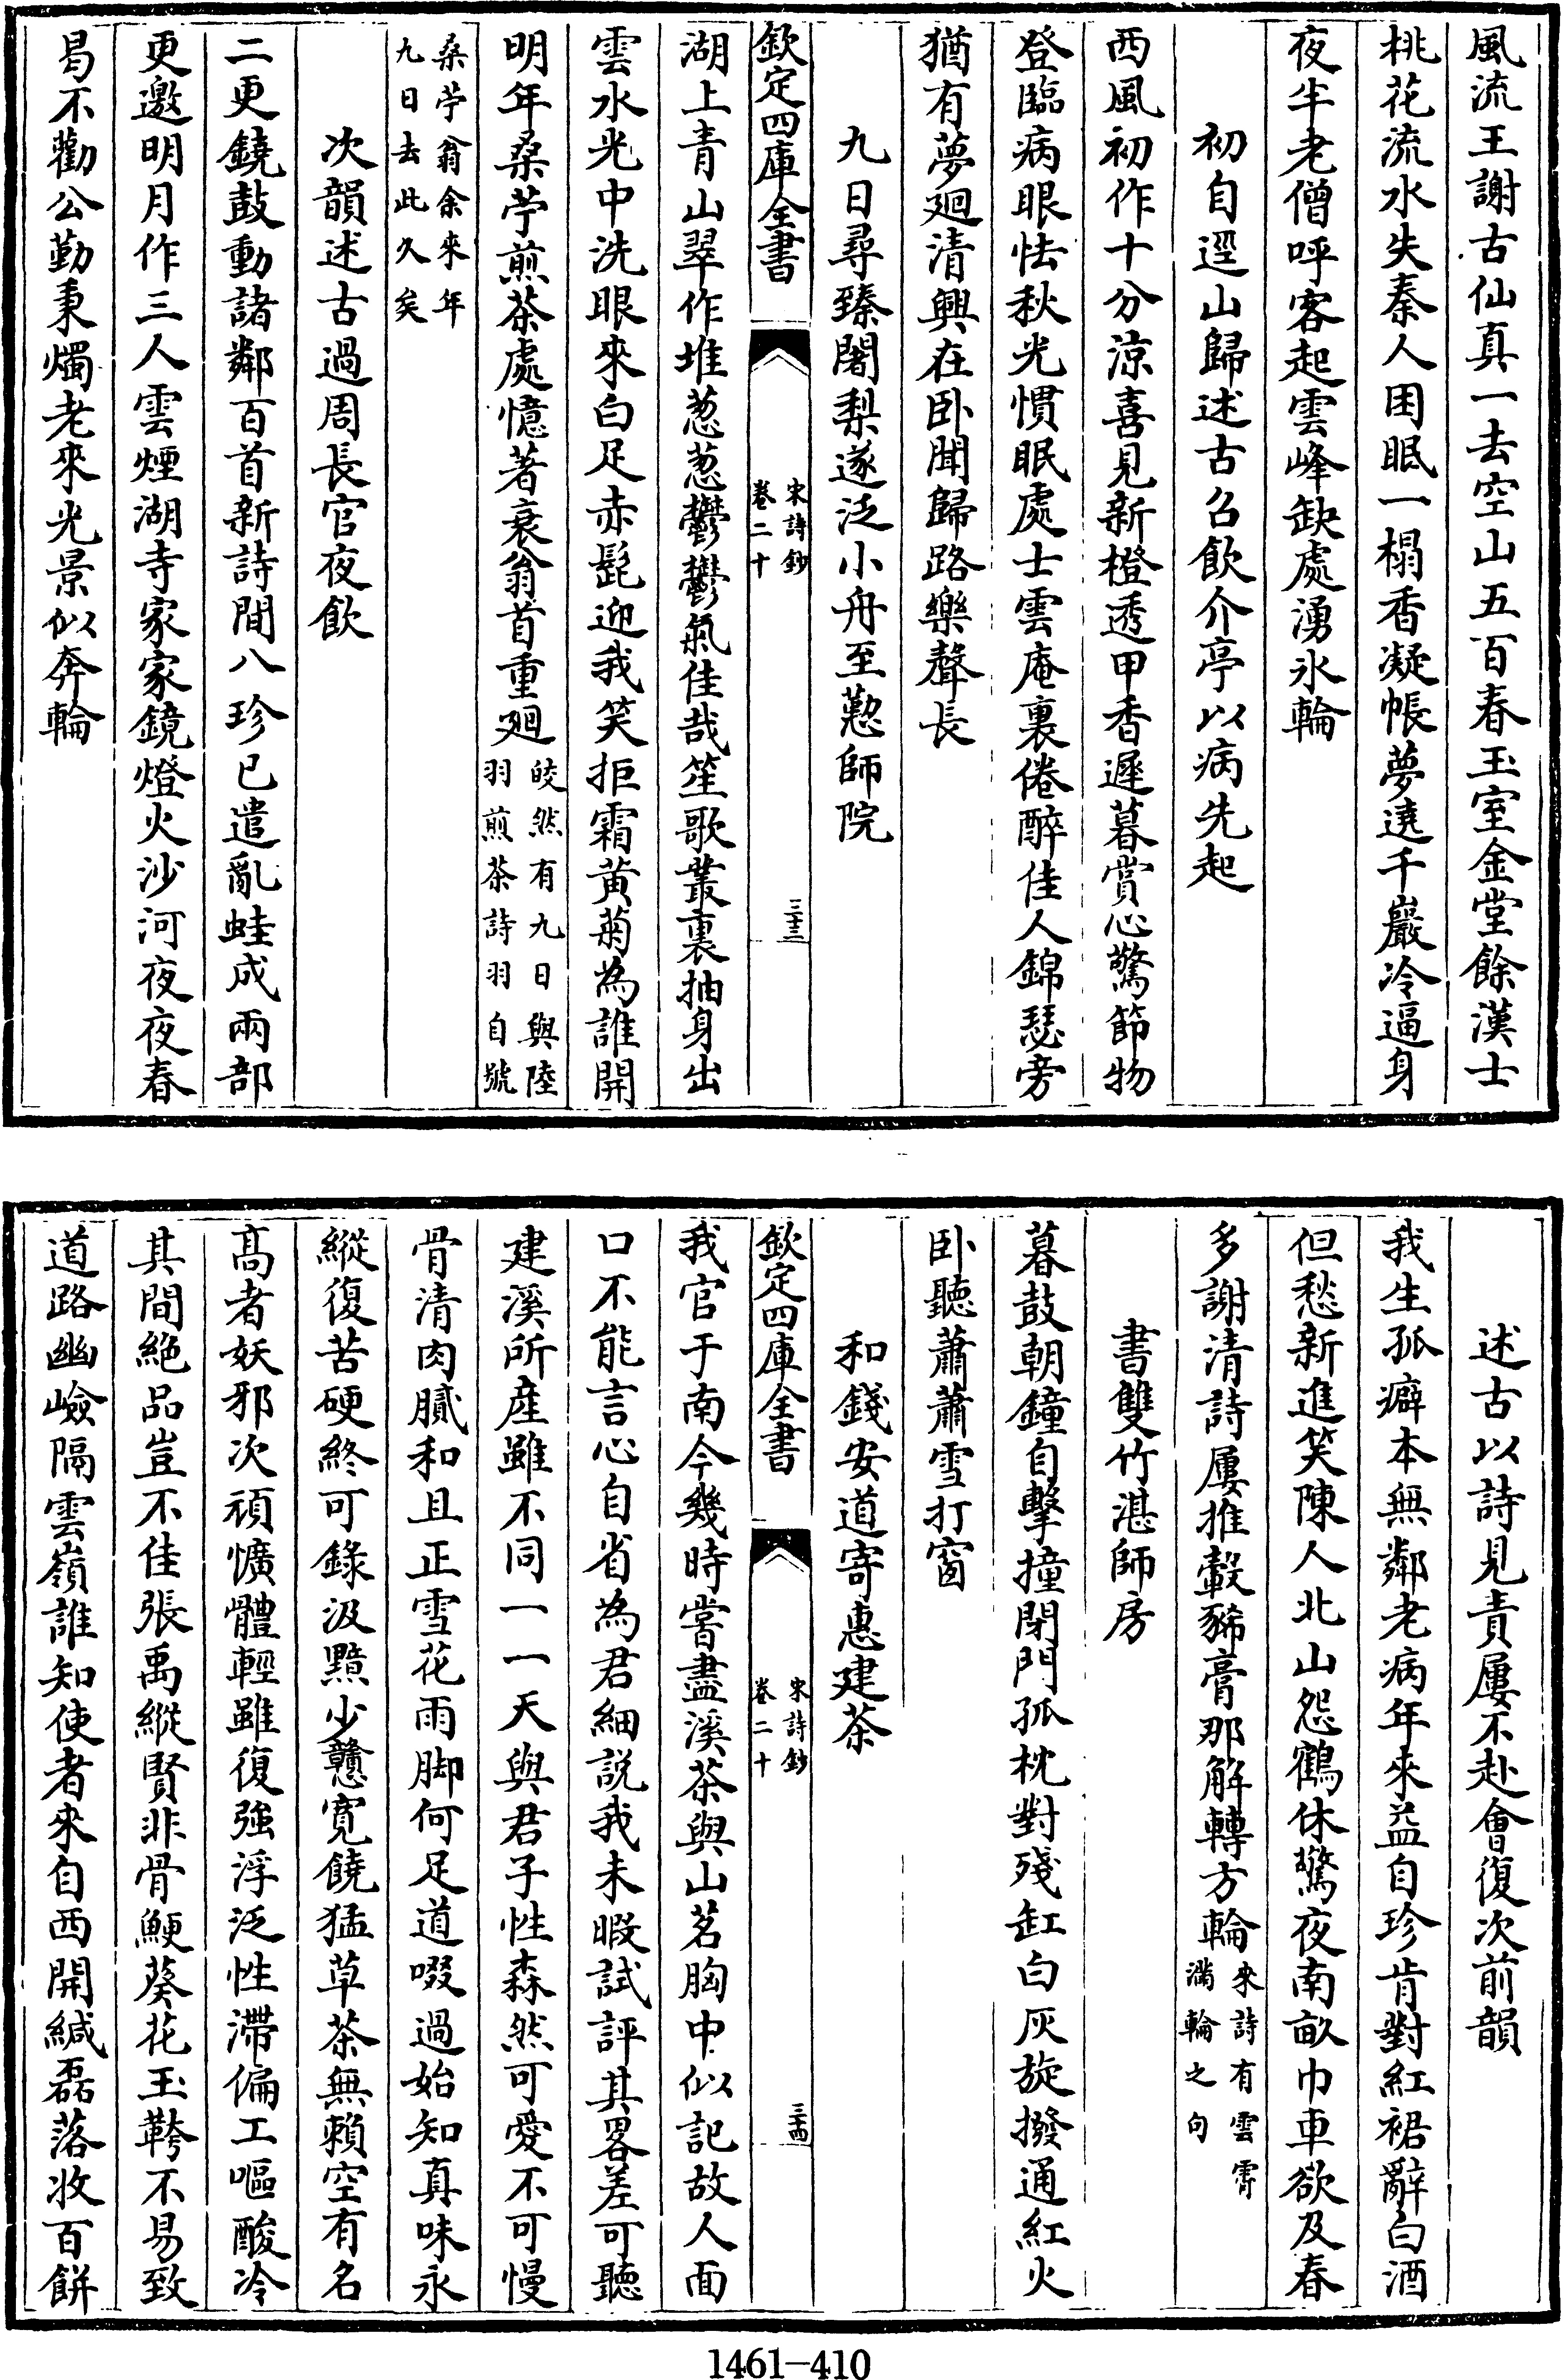 風流王謝古仙真一去空山五百春玉室金堂餘漢士
桃花流水失秦人困眠一榻香凝帳夢遶千巖冷逼身
夜半老僧呼客起雲峰缺處湧氷輪
初自逕山歸述古召飲介亭以病先起
西風初作十分涼喜見新橙透甲香遲暮賞心驚節物
登臨病眼怯秋光慣眠處士雲庵裏倦醉佳人錦瑟旁
猶有夢廻清興在卧聞歸路樂聲長
九日尋臻闍梨遂泛小舟至懃師院
欽定四庫全書
宋詩鈔
卷二十
三十三
湖上青山翠作堆葱葱鬱鬱氣佳哉笙歌叢裏抽身出
雲水光中洗眼來白足赤髭迎我笑拒霜黃菊為誰開
明年桑苧煎茶處憶著衰翁首重廻皎然有九日與陸
羽煎茶詩羽自號
桑苧翁余來年
九日去此久矣
次韻述古過周長官夜飲
二更鐃鼓動諸鄰百首新詩間八珍已遣亂蛙成兩部
更邀明月作三人雲煙湖寺家家鏡燈火沙河夜夜春
曷不勸公勤秉燭老來光景似奔輪
述古以詩見責屢不赴會復次前韻
我生孤癖本無鄰老病年來益自珍肯對紅裙辭白酒
但愁新進笑陳人北山怨鶴休驚夜南畝巾車欲及春
多謝清詩屢推轂豨膏那解轉方輪來詩有雲霄
滿輪之句
書雙竹湛師房
暮鼓朝鐘自擊撞閉門孤枕對殘缸白灰旋撥通紅火
卧聽蕭蕭雪打窗
和錢安道寄惠建茶
欽定四庫全書
宋詩鈔
卷二十
三十四
我官于南今幾時嘗盡溪茶與山茗胸中似記故人面
口不能言心自省為君細說我未暇試評其畧差可聽
建溪所產雖不同一一天與君子性森然可愛不可慢
骨清肉膩和且正雪花雨脚何足道啜過始知真味永
縱復苦硬終可錄汲黯少戇寛饒猛草茶無賴空有名
髙者妖邪次頑懭體輕雖復強浮泛性滯偏工嘔酸冷
其間絶品豈不佳張禹縱賢非骨鯁葵花玉䩞不易致
道路幽嶮隔雲嶺誰知使者來自西開緘磊落收百餅
1461-410